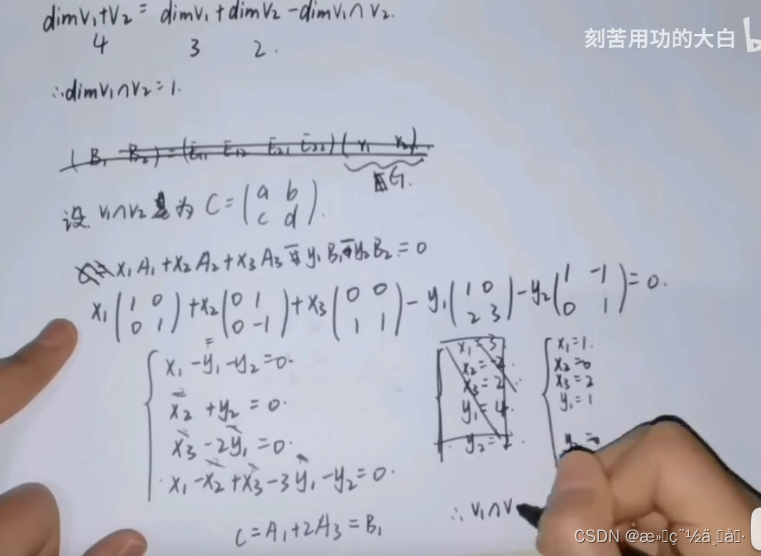 dimV₁+V₂ = dimV₁+dimV₂-dimV₁∩V₂.
4 3 2.
刻苦用功的大白
∴dimV₁∩V₂=1.
( B₁ B₂)=(E₁₁ E₁₂ E₂₁ E₂₂)(
G.
设 V₁∩V₂ 基为 C=(a b
c d).
x₁A₁+x₂A₂+x₃A₃-y₁B₁-y₂B₂=0
x₁(1 0
0 1)+x₂(0 1
0 -1)+x₃(0 0
1 1)-y₁(1 0
2 3)-y₂(1 -1
0 1)=0.
x₁-y₁-y₂=0.
x₂+y₂=0.
x₃-2y₁=0.
x₁-x₂+x₃-3y₁-y₂=0.
x₁=3
x₂=-2
x₃=2
y₁=4
y₂=
x₁=1.
x₂=0
x₃=2
y₁=1
y₂=
C=A₁+2A₃=B₁
∴V₁∩V
CSDN